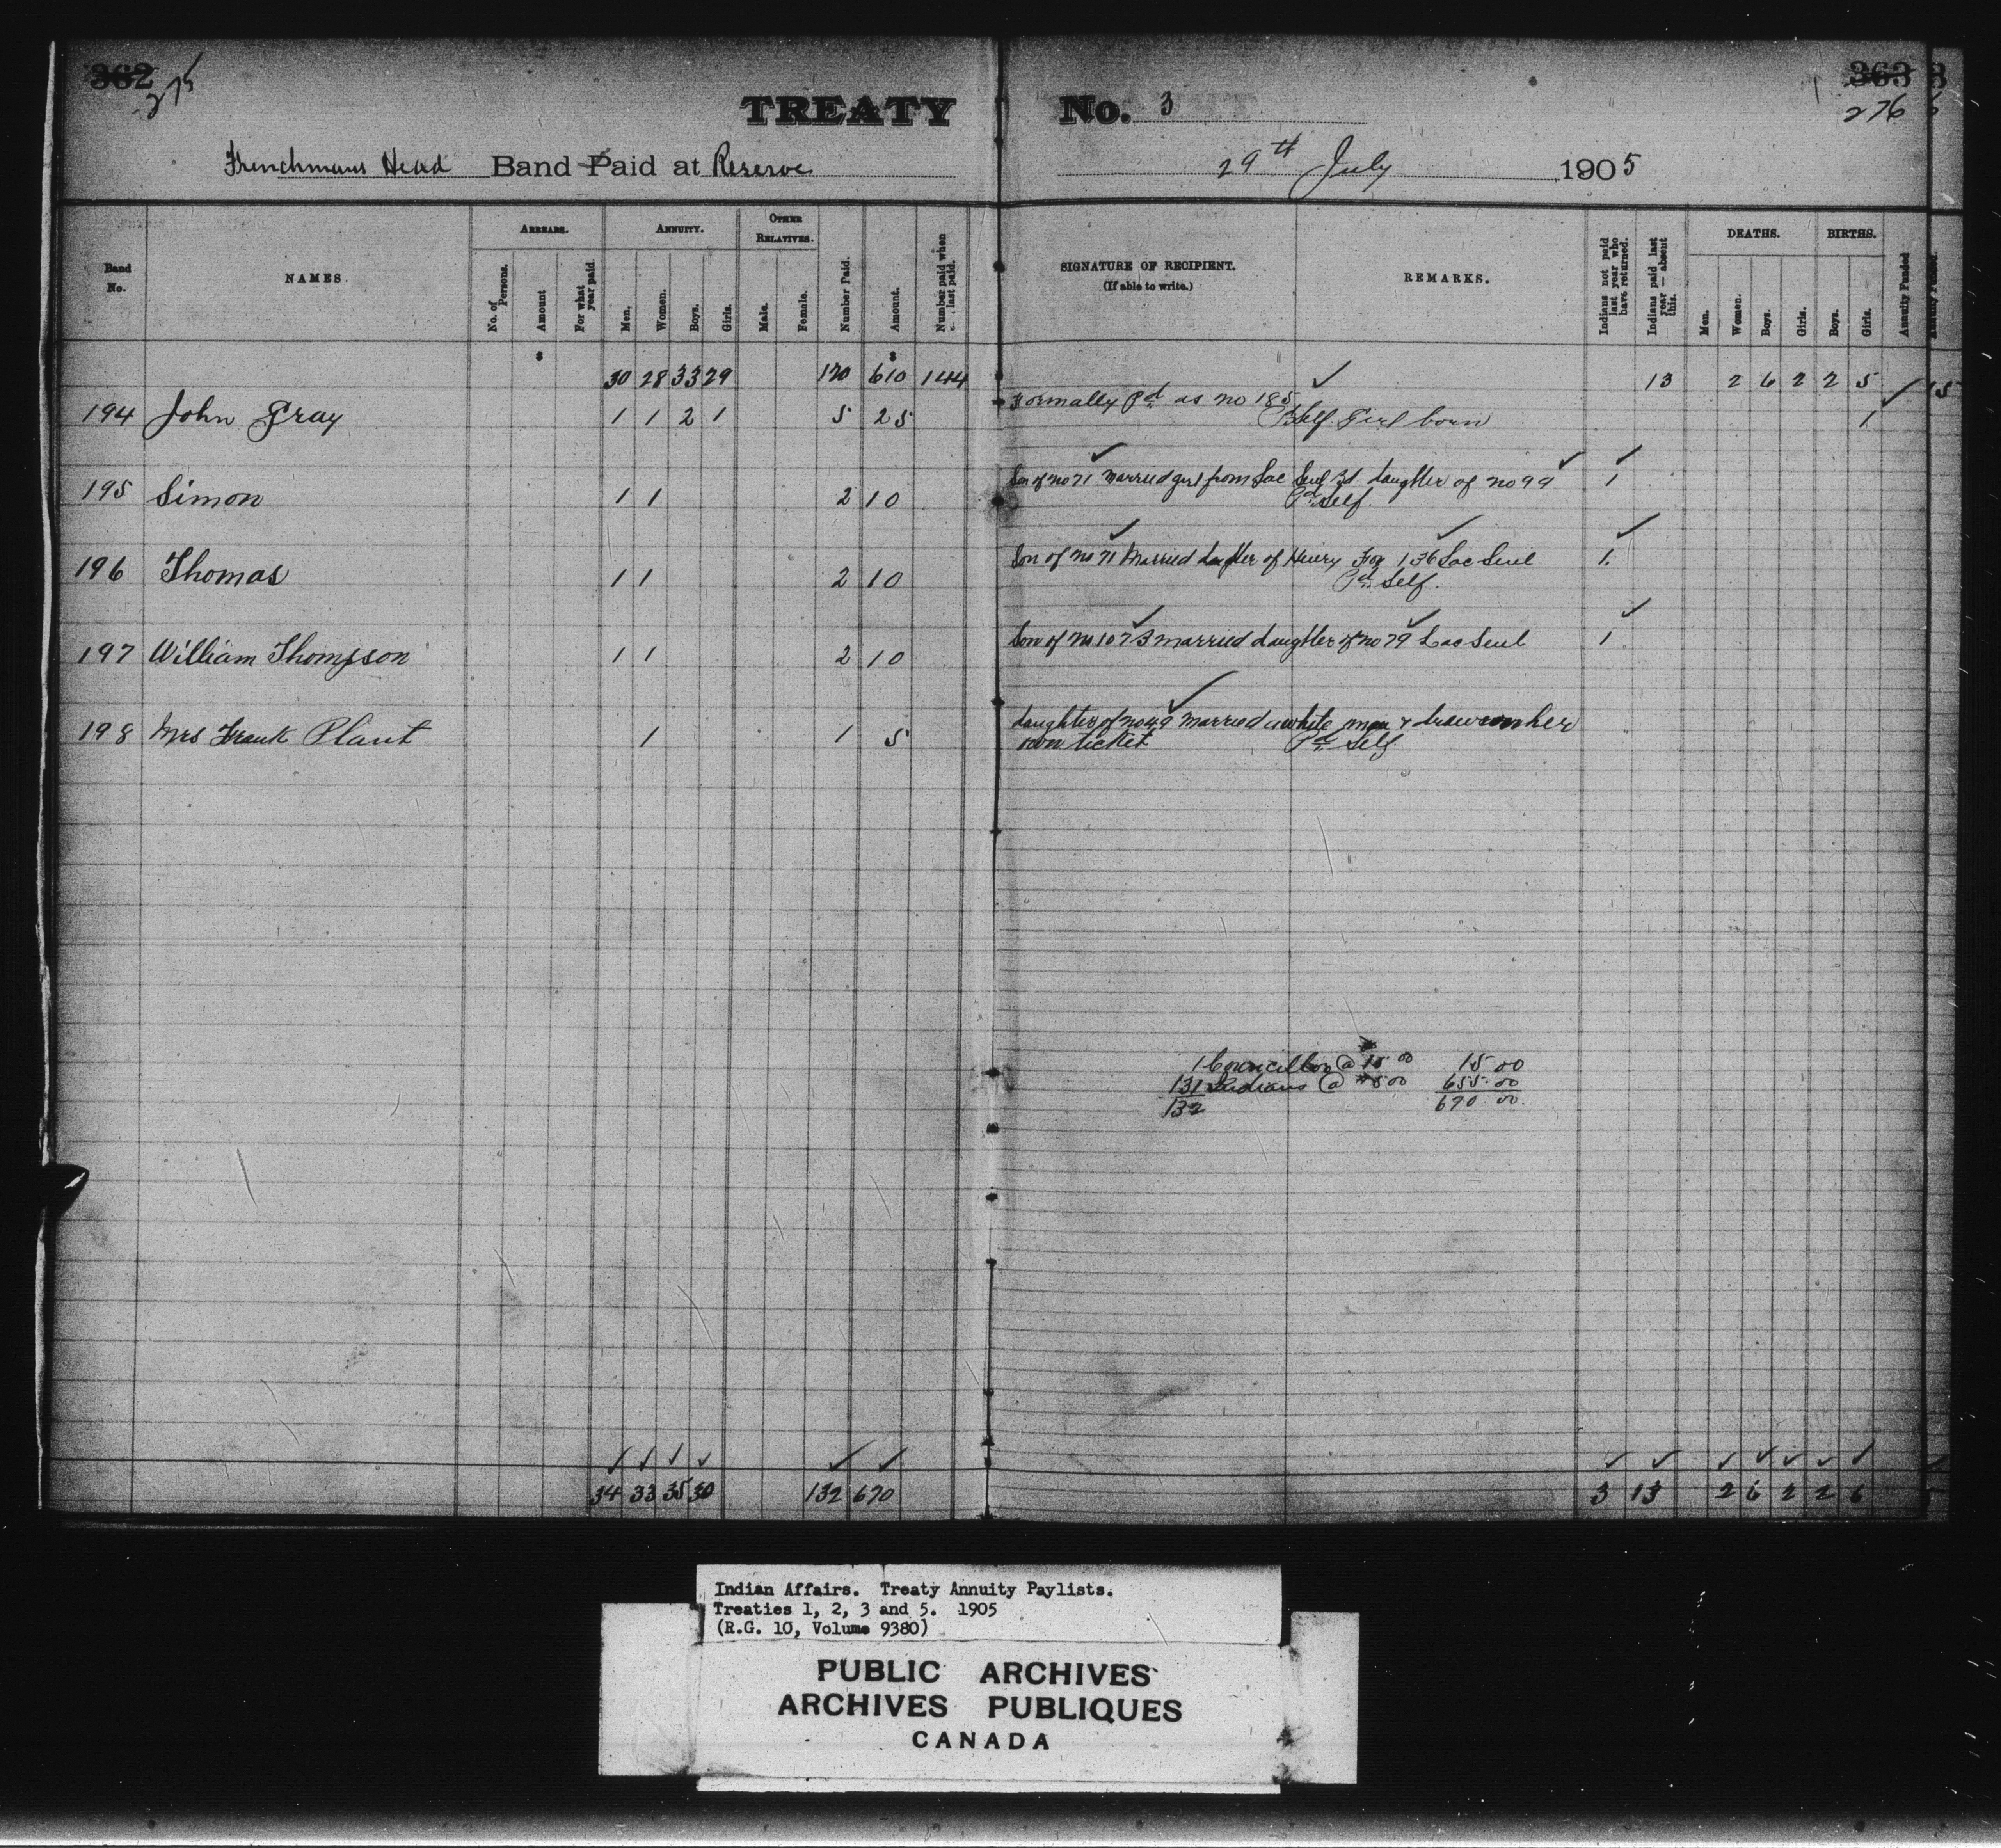 362 275
363 276
TREATY No. 3
Frenchmans Head Band Paid at Reserve 29th July 1905
Band No. NAMES. ARREARS. No. of Persons. Amount For what year paid ANNUITY. Men. Women. Boys. Girls. OTHER RELATIVES. Male. Female. Number Paid. Amount. Number paid when last paid. SIGNATURE OF RECIPIENT. (If able to write.) REMARKS. Indians not paid last year who have returned. Indians paid last year — absent this. DEATHS. Men. Women. Boys. Girls. BIRTHS. Boys. Girls. Annuity Funded
$ $
30 28 33 29 120 610 144 13 2 6 2 2 5
194 John Gray 1 1 2 1 5 25 Formally Pd as no 185 1
Self Girl born
195 Simon 1 1 2 10 Son of no 71 Married girl from Lac Seul Bd daughter of no 99 1
Pd Self.
196 Thomas 1 1 2 10 Son of no 71 Married daughter of Henry Fox 136 Lac Seul 1
Pd Self.
197 William Thompson 1 1 2 10 Son of no 107 married daughter of no 79 Lac Seul 1
198 Mrs Frank Plant 1 1 5 daughter of no 49 married a white man & draws on her
own ticket Pd Self
1 Councillor @ 15.00 15 00
131 Indians @ $5.00 655.00
132 670.00
34 33 35 30 132 670 3 13 2 6 2 2 6
Indian Affairs. Treaty Annuity Paylists.
Treaties 1, 2, 3 and 5. 1905
(R.G. 10, Volume 9380)
PUBLIC ARCHIVES
ARCHIVES PUBLIQUES
CANADA